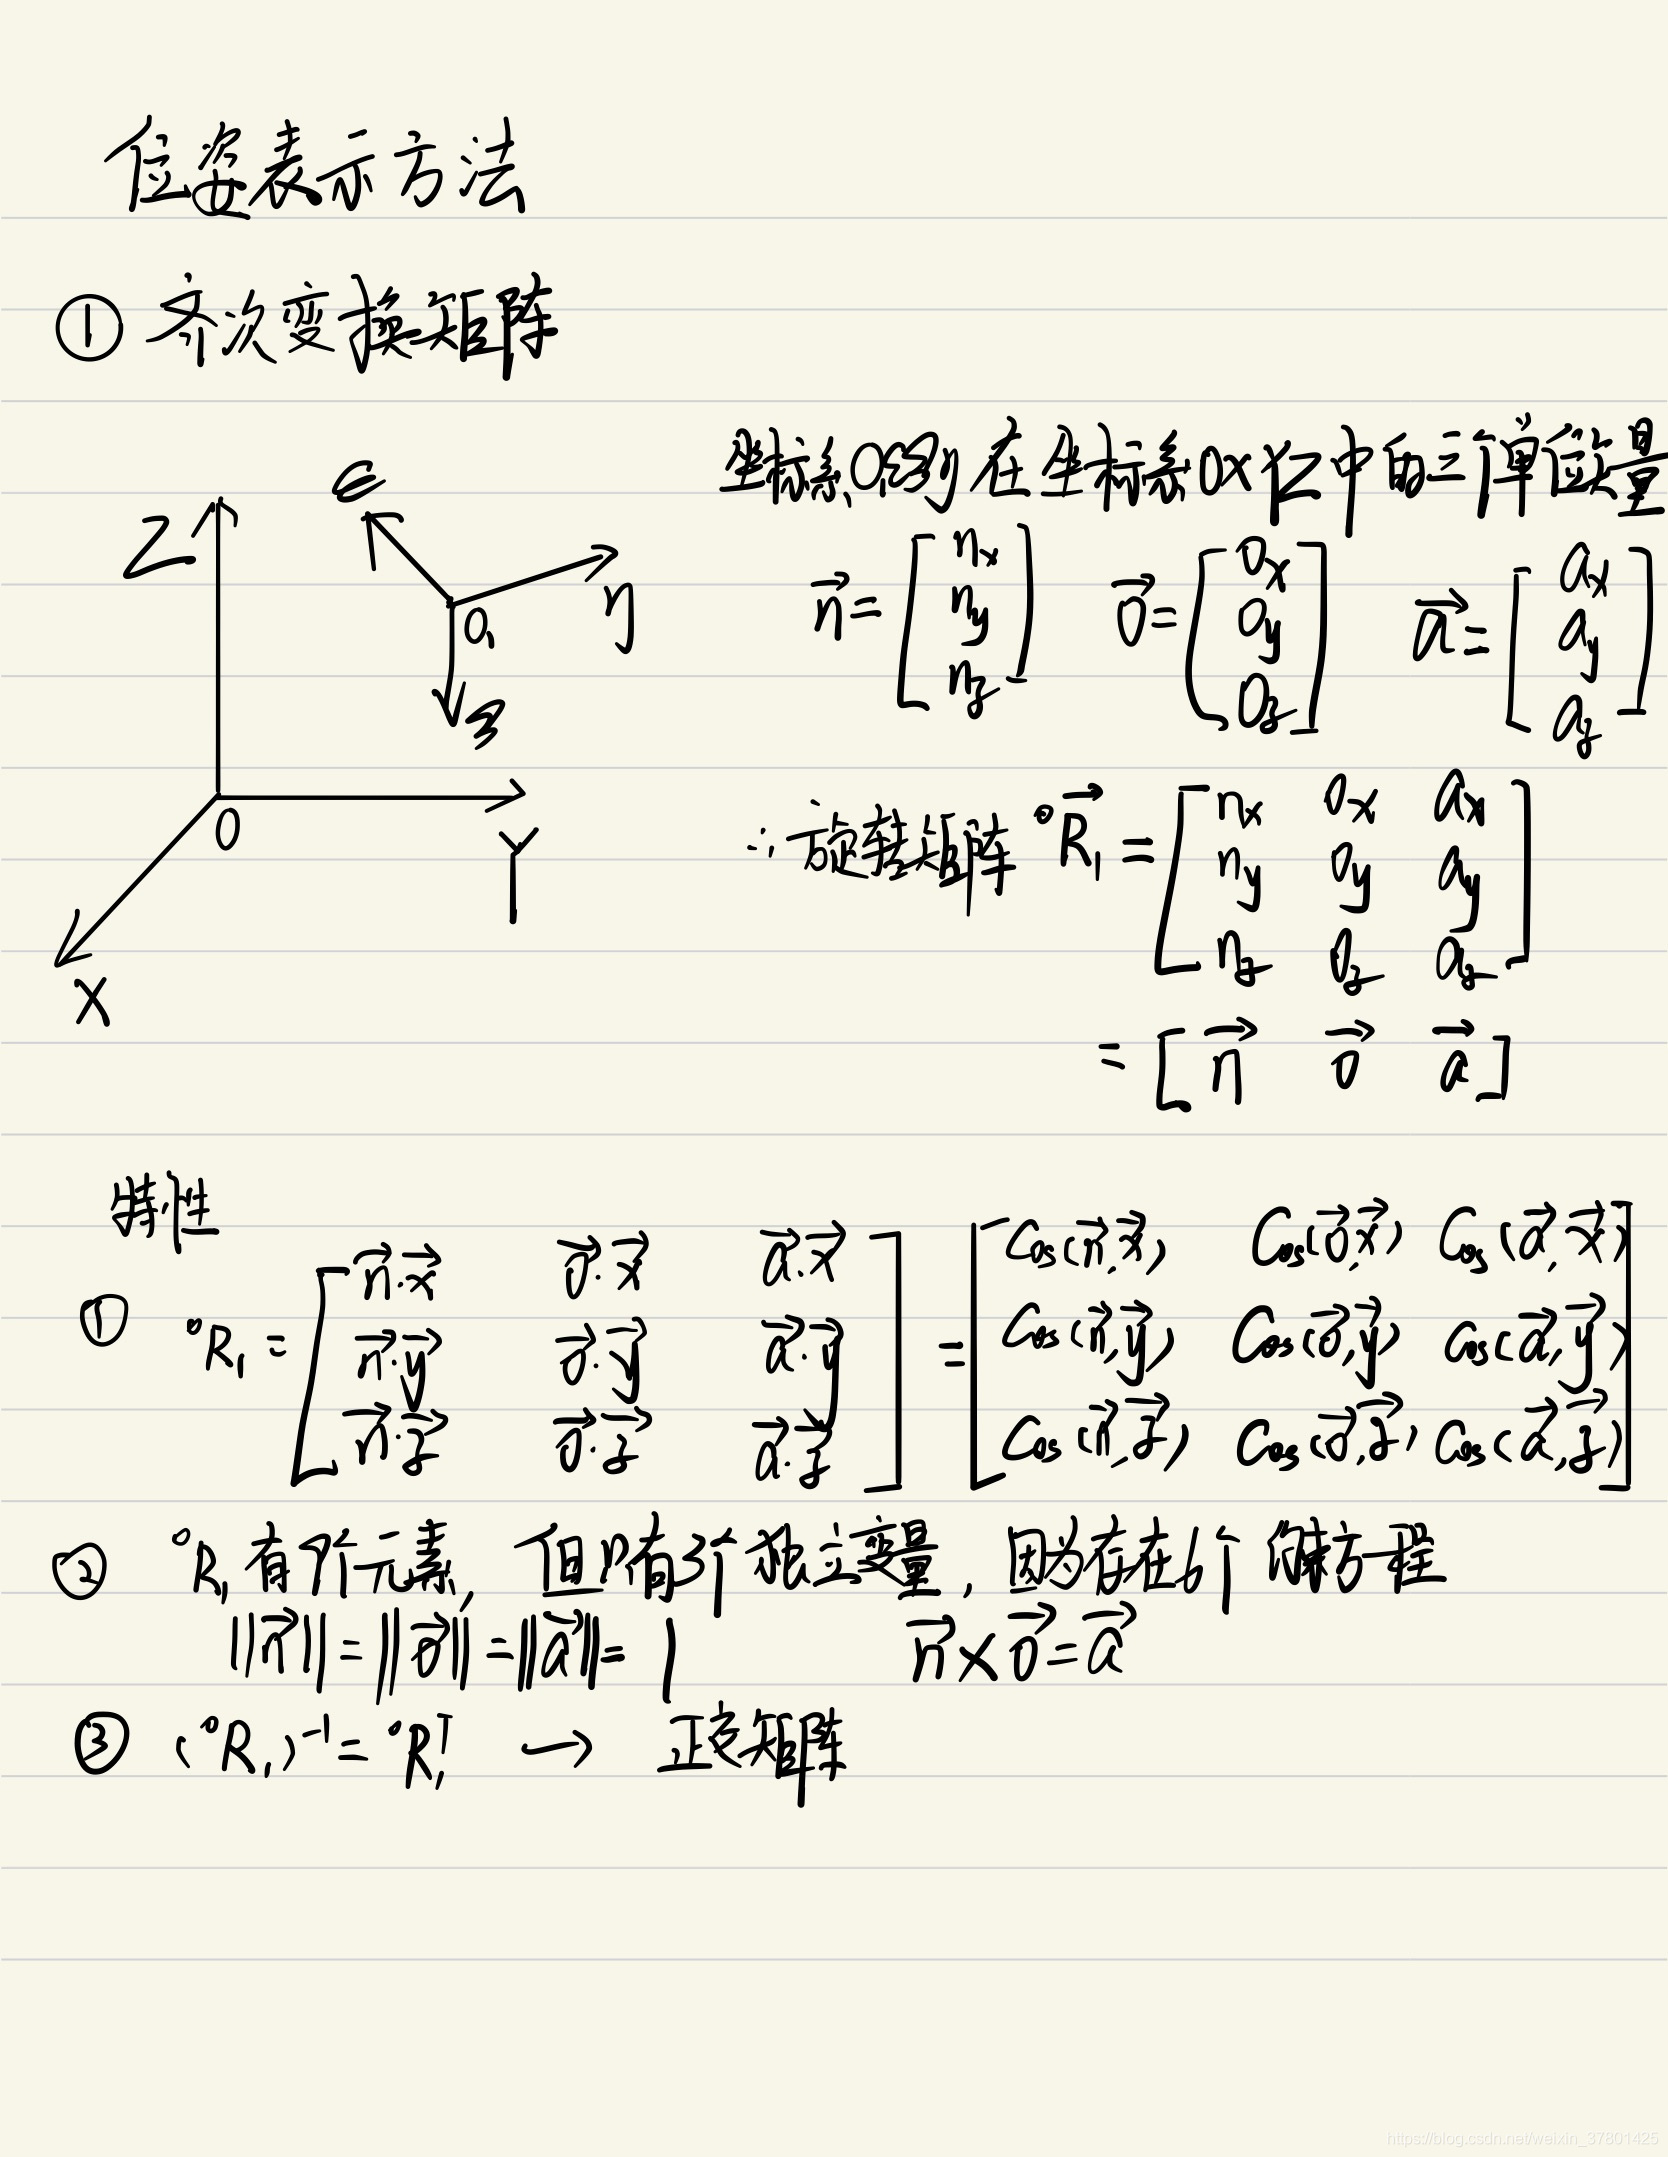 位姿表示方法
① 齐次变换矩阵
坐标系O₁εξη在坐标系OXYZ中的三个单位矢量
Z
ε
η
O₁
ξ
O
Y
X
n⃗ = [nx ny nz] o⃗ = [ox oy oz] a⃗ = [ax ay az]
∴ 旋转矩阵 ⁰R⃗₁ = [nx ox ax
ny oy ay
nz oz az]
= [n⃗ o⃗ a⃗]
特性
① ⁰R₁ = [n⃗·x⃗ o⃗·x⃗ a⃗·x⃗] = [Cos(n⃗,x⃗) Cos(o⃗,x⃗) Cos(a⃗,x⃗)]
[n⃗·y⃗ o⃗·y⃗ a⃗·y⃗] [Cos(n⃗,y⃗) Cos(o⃗,y⃗) Cos(a⃗,y⃗)]
[n⃗·z⃗ o⃗·z⃗ a⃗·z⃗] [Cos(n⃗,z⃗) Cos(o⃗,z⃗) Cos(a⃗,z⃗)]
② ⁰R₁有9个元素, 但只有3个独立变量, 因为存在6个 方程
||n⃗|| = ||o⃗|| = ||a⃗|| = 1 n⃗×o⃗=a⃗
③ (⁰R₁)⁻¹ = ⁰R₁ᵀ → 正交矩阵
https://blog.csdn.net/weixin_37801425